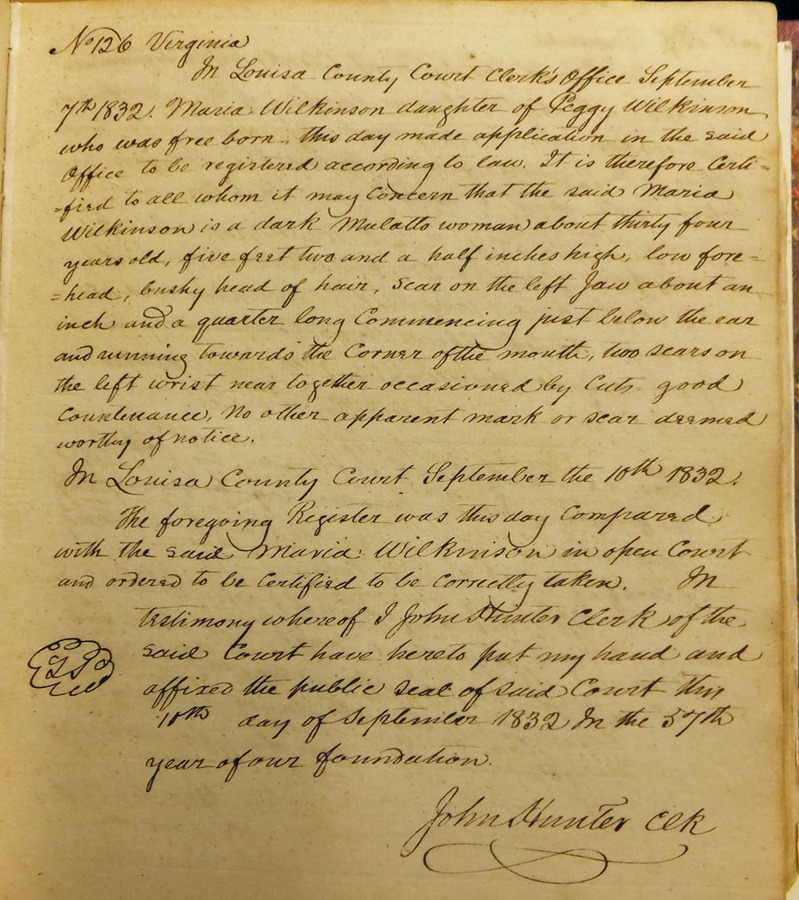 No 126 Virginia
In Louisa County Court Clerk's Office September
7th 1832. Maria Wilkinson daughter of Peggy Wilkinson
who was free born, this day made application in the said
Office to be registered according to law. It is therefore Certi=
=fied to all whom it may Concern that the said Maria
Wilkinson is a dark Mulatto woman about thirty four
years old, five feet two and a half inches high, low fore=
=head, bushy head of hair, Scar on the left Jaw about an
inch and a quarter long Commencing just below the ear
and running towards the Corner of the mouth, two scars on
the left wrist near together occasioned by Cuts good
Countenance, No other apparent mark or scar deemed
worthy of notice.
In Louisa County Court September the 10th 1832.
The foregoing Register was this day Compared
with the said Maria Wilkinson in open Court
and ordered to be Certified to be Correctly taken. In
testimony whereof I John Hunter Clerk of the
said Court have hereto put my hand and
affixed the public seal of said Court this
10th day of September 1832 In the 57th
year of our foundation.
John Hunter Clk